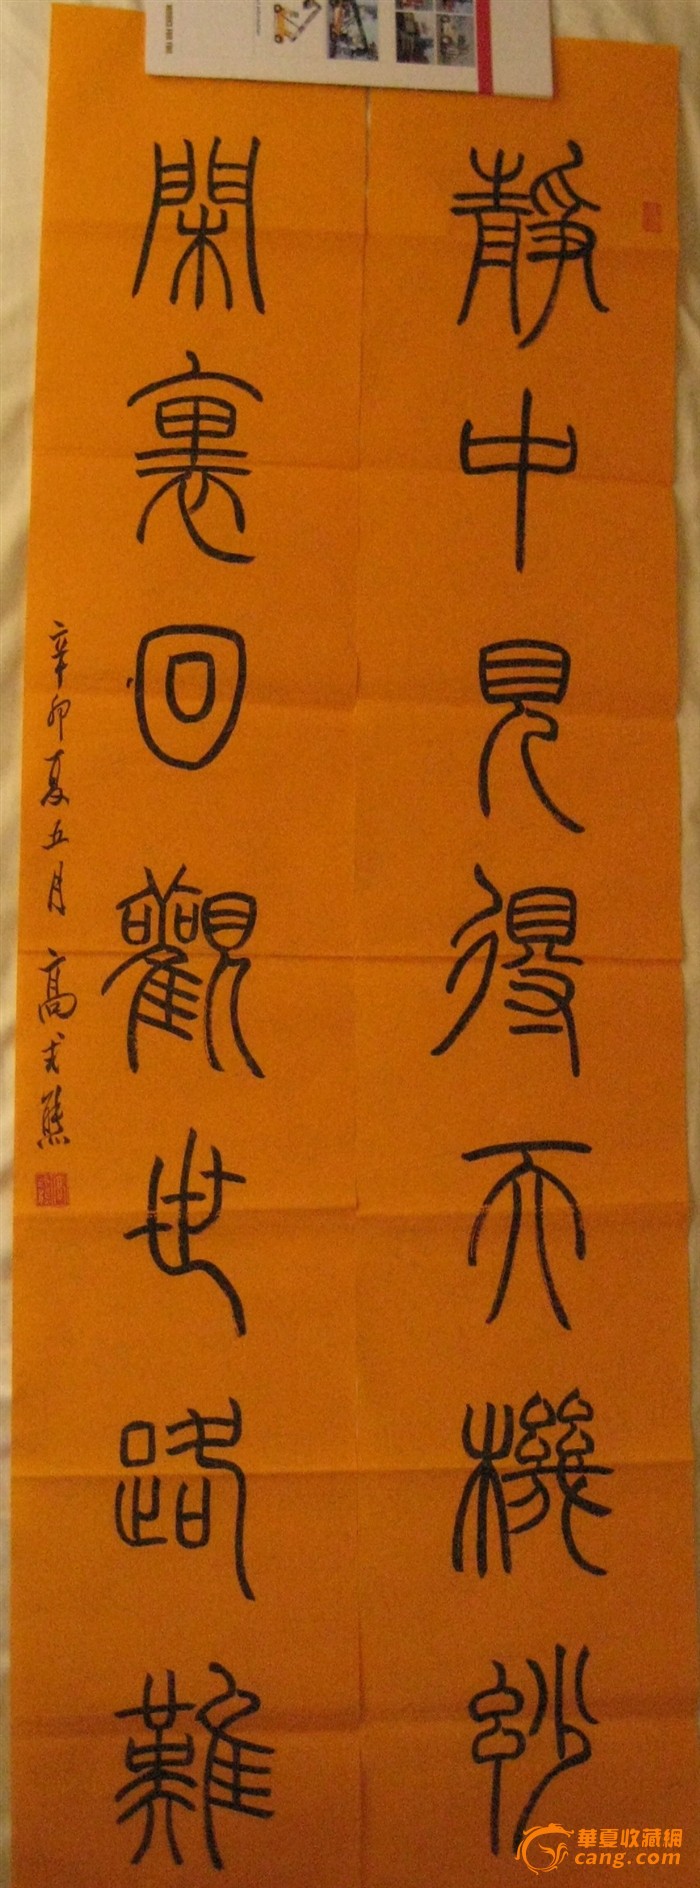 靜中見得天機妙
閑裏回觀世路難
辛卯夏五月 高式熊
華夏收藏網
cang.com